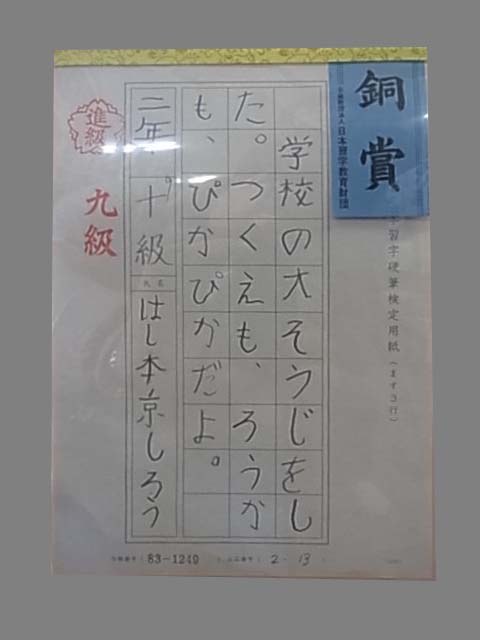 銅賞
公益財団法人日本習字教育財団
習字硬筆検定用紙(ます3行)
学校の大そうじをし
た。つくえも、ろうか
も、ぴかぴかだよ。
二年、十級
氏名
はし本京しろう
進級
九級
83-1249
2-13